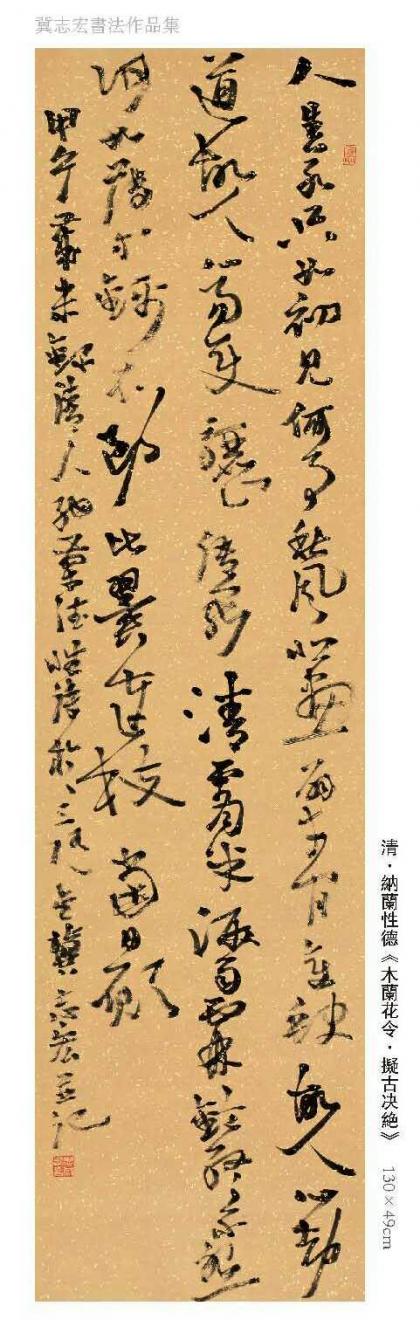 冀志宏書法作品集
人生若只如初見何事秋風悲畫扇等閒變却故人心却
道故人心易變驪山語罷清宵半淚雨霖鈴終不怨
何如薄倖錦衣郎比翼連枝當日願
甲午歲末録清人納蘭德性詩於三冀志宏並記
清·納蘭性德《木蘭花令·擬古决絶》 130×49cm